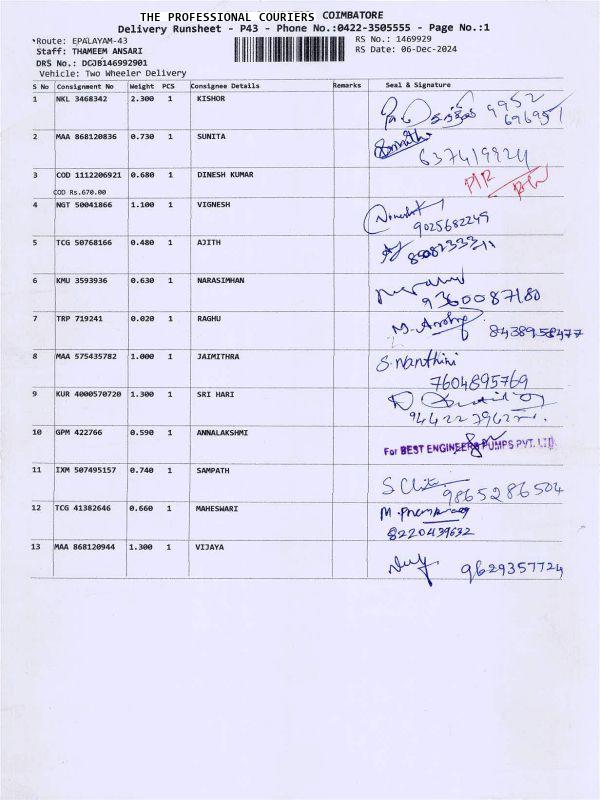 THE PROFESSIONAL COURIERS COIMBATORE
Delivery Runsheet - P43 - Phone No.:0422-3505555 - Page No.:1
Route: EPALAYAM-43 RS No.: 1469929
Staff: THAMEEM ANSARI RS Date: 06-Dec-2024
DRS No.: DCJB146992901
Vehicle: Two Wheeler Delivery
S No Consignment No Weight PCS Consignee Details Remarks Seal & Signature
1 NKL 3468342 2.300 1 KISHOR 9952
696951
2 MAA 868120836 0.730 1 SUNITA
6374199211
3 COD 1112206921 0.680 1 DINESH KUMAR
COD Rs.670.00
4 NGT 50041866 1.100 1 VIGNESH
9025682249
5 TCG 50768166 0.480 1 AJITH
6 KMU 3593936 0.630 1 NARASIMHAN
9360087180
7 TRP 719241 0.020 1 RAGHU
8438958477
8 MAA 575435782 1.000 1 JAIMITHRA S. Nanthini
7604895769
9 KUR 4000570720 1.300 1 SRI HARI
10 GPM 422766 0.590 1 ANNALAKSHMI
For BEST ENGINEERS PUMPS PVT. LTD
11 IXM 507495157 0.740 1 SAMPATH
9865286504
12 TCG 41382646 0.660 1 MAHESWARI
8220439632
13 MAA 868120944 1.300 1 VIJAYA
9629357724